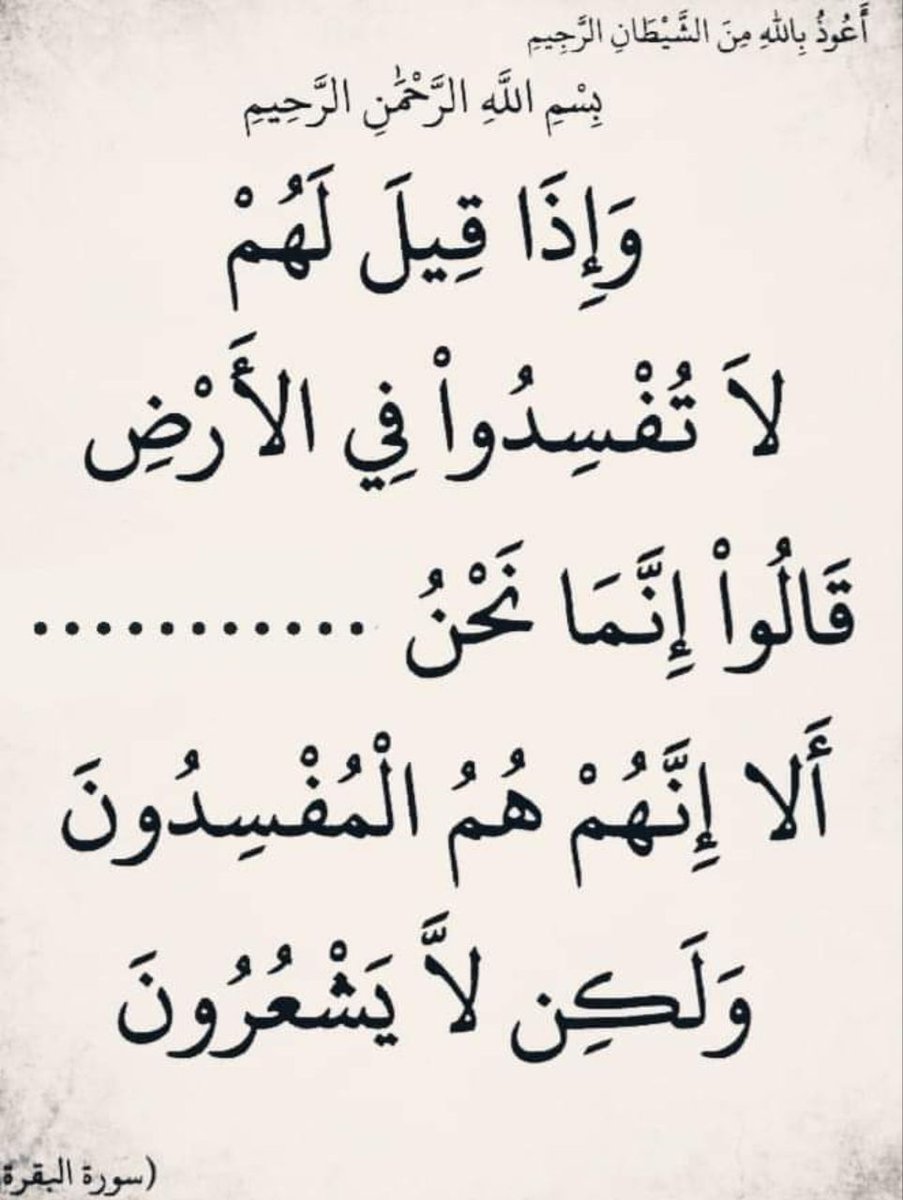 أَعُوذُ بِاللهِ مِنَ الشَّيْطَانِ الرَّجِيمِ
بِسْمِ اللَّهِ الرَّحْمَٰنِ الرَّحِيمِ
وَإِذَا قِيلَ لَهُمْ
لاَ تُفْسِدُواْ فِي الأَرْضِ
قَالُواْ إِنَّمَا نَحْنُ ...........
أَلا إِنَّهُمْ هُمُ الْمُفْسِدُونَ
وَلَكِن لاَّ يَشْعُرُونَ
(سورة البقرة